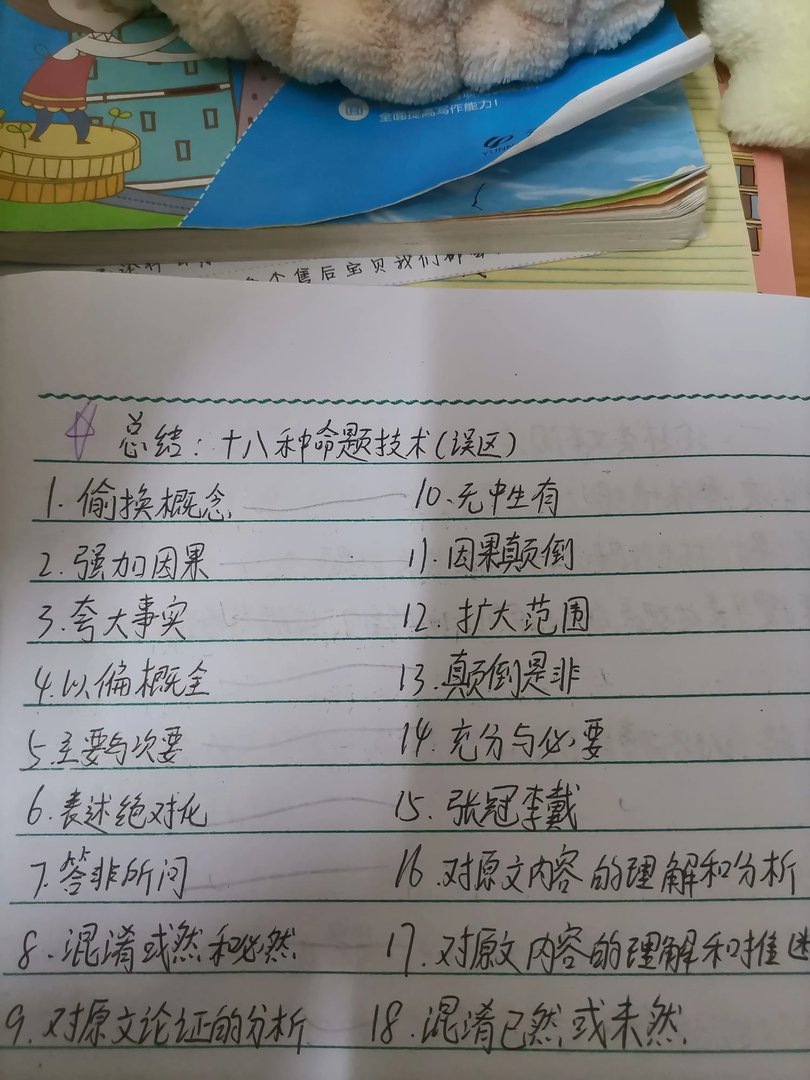 全面提高写作能力!
个售后宝贝我们都会
总结：十八种命题技术(误区)
1. 偷换概念 10. 无中生有
2. 强加因果 11. 因果颠倒
3. 夸大事实 12. 扩大范围
4. 以偏概全 13. 颠倒是非
5. 主要与次要 14. 充分与必要
6. 表述绝对化 15. 张冠李戴
7. 答非所问 16. 对原文内容的理解和分析
8. 混淆或然和必然 17. 对原文内容的理解和推
9. 对原文论证的分析 18. 混淆已然或未然